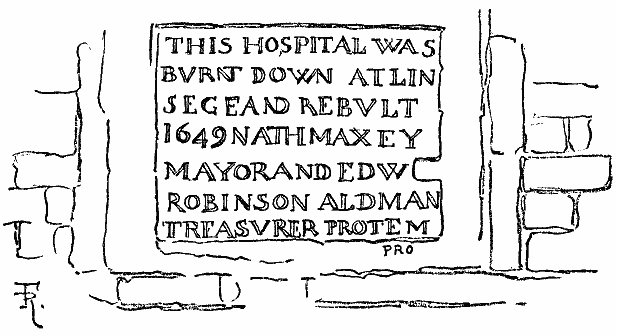 THIS HOSPITAL WAS
BVRNT DOWN AT LIN
SEGE AND REBVLT
1649 NATH MAXEY
MAYOR AND EDW
ROBINSON ALDMAN
TREASVRER PROTEM
PRO